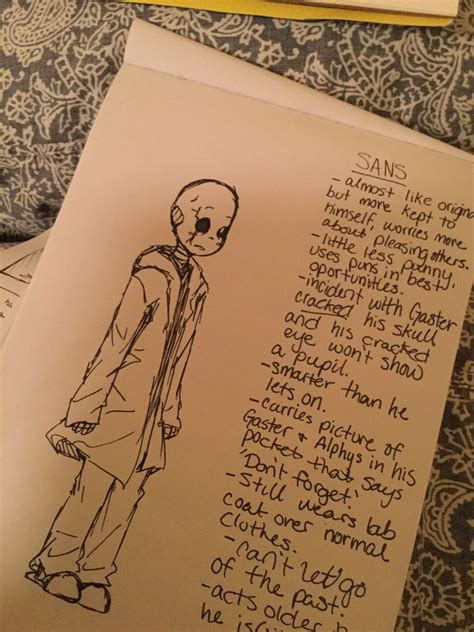 SANS
- almost like origina
but more kept to
himself, worries more
about pleasing others.
- little less puhnny,
uses puns in best
oportunities.
- incident with Gaster
cracked his skull
and his cracked
eye won't show
a pupil.
- smarter than he
lets on.
- carries picture of
Gaster & Alphys in his
pocket that says
'Don't forget.'
- Still wears lab
coat over normal
clothes.
- can't let go
of the past
- acts older
he is